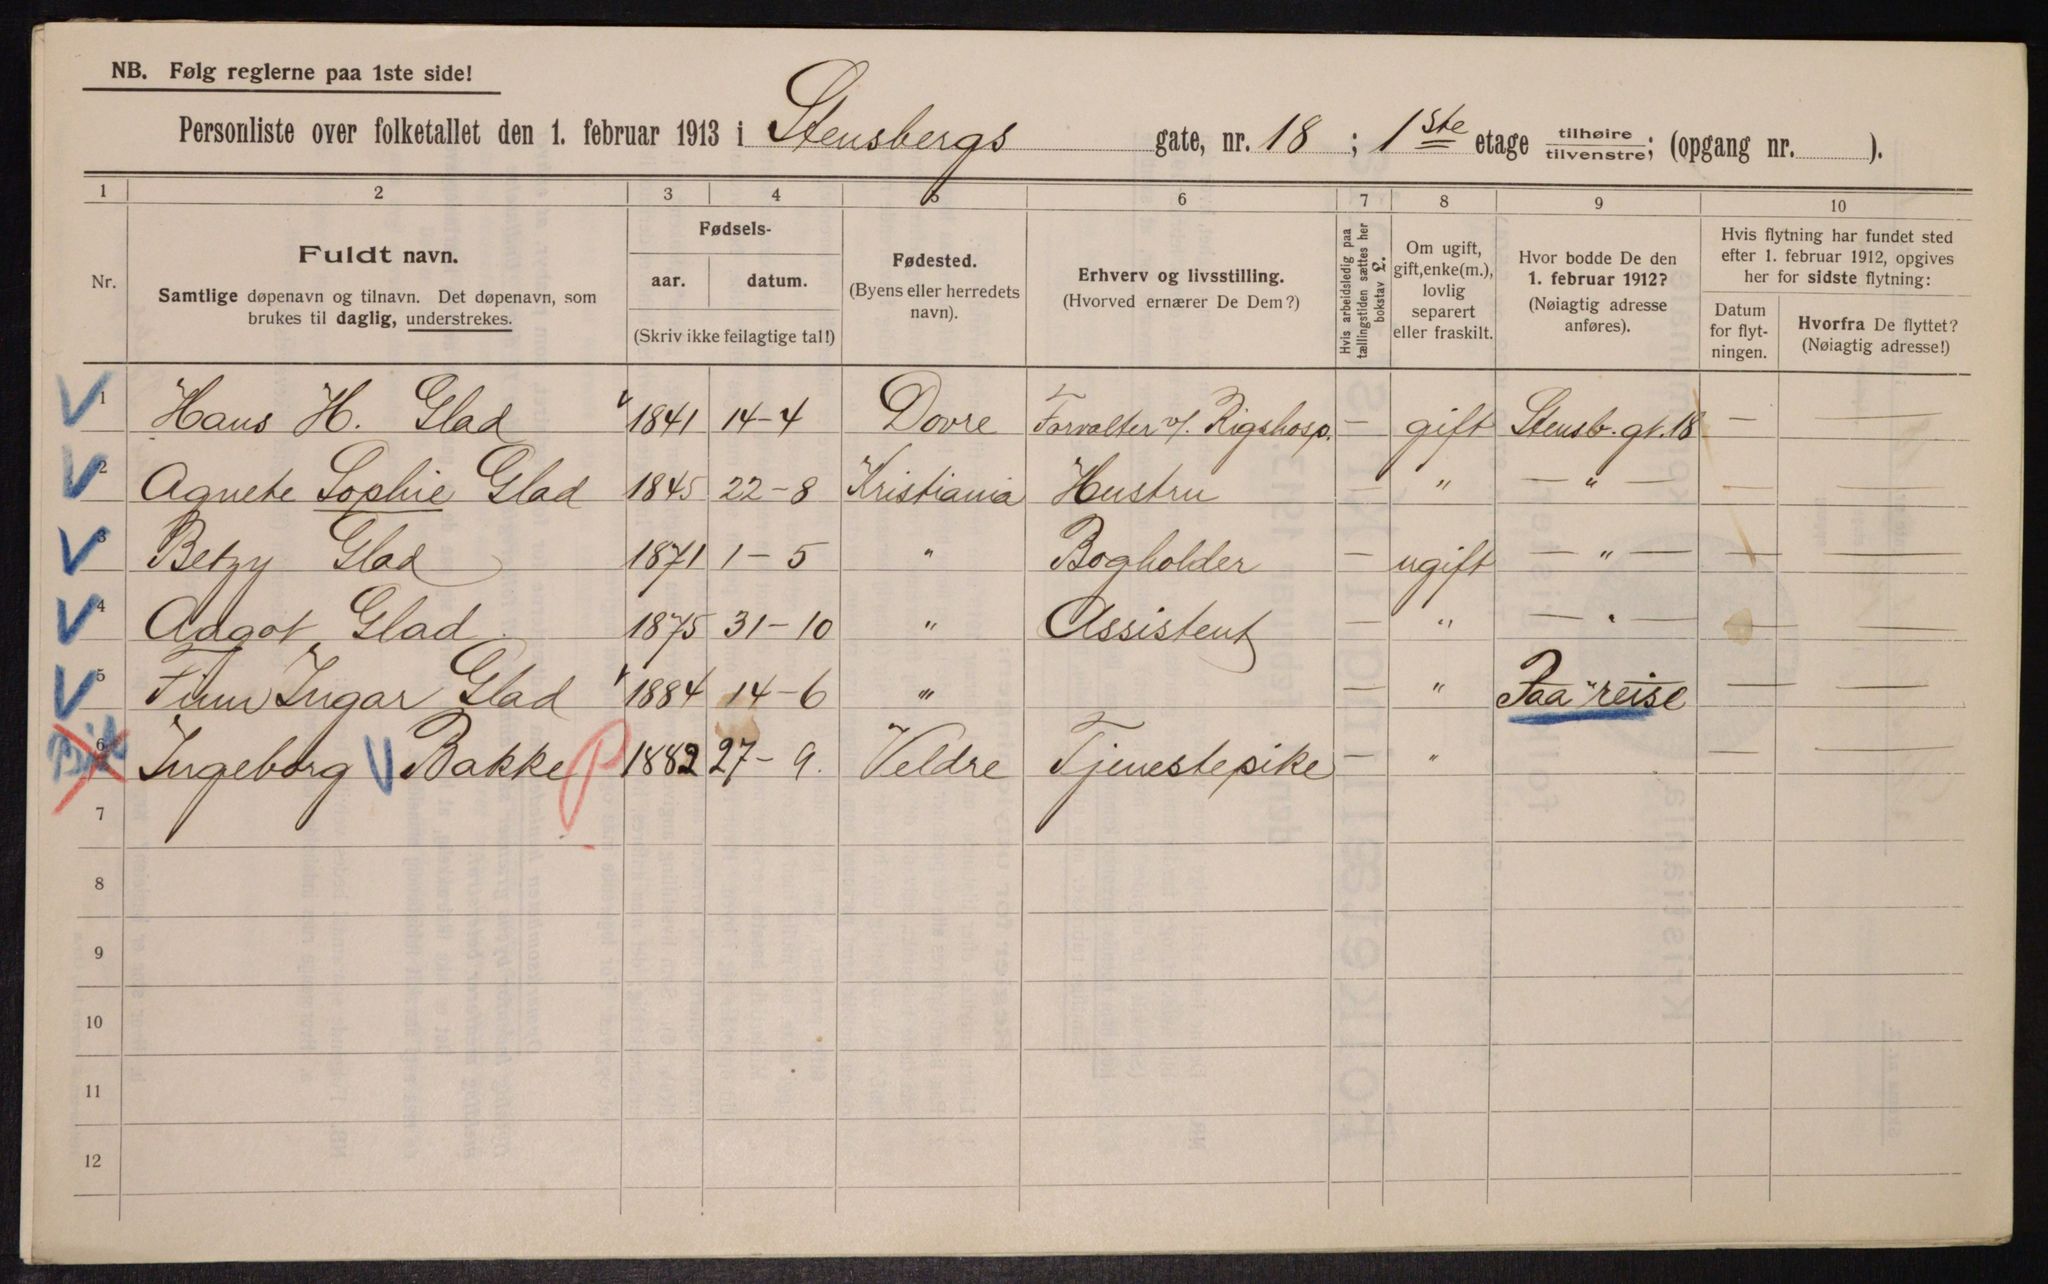 NB. Følg reglerne paa 1ste side!
Personliste over folketallet den 1. februar 1913 i Stensbergs gate, nr. 18 ; 1ste etage tilhøire tilvenstre; (opgang nr. ).
1 2 3 4 5 6 7 8 9 10
Nr.
Fuldt navn.
Samtlige døpenavn og tilnavn. Det døpenavn, som
brukes til daglig, understrekes.
Fødsels-
aar. datum.
(Skriv ikke feilagtige tal!)
Fødested.
(Byens eller herredets
navn).
Erhverv og livsstilling.
(Hvorved ernærer De Dem?)
Hvis arbeidsledig paa
tællingstiden sættes her
bokstav L.
Om ugift,
gift, enke(m.),
lovlig
separert
eller fraskilt.
Hvor bodde De den
1. februar 1912?
(Nøiagtig adresse
anføres).
Hvis flytning har fundet sted
efter 1. februar 1912, opgives
her for sidste flytning:
Datum
for flyt-
ningen.
Hvorfra De flyttet?
(Nøiagtig adresse!)
1 Hans H. Glad 1841 14-4 Dovre Forvalter v/. Rigshosp. — gift Stensb. gt. 18 — —
2 Agnete Sophie Glad 1845 22-8 Kristiania Hustru — " — " — — —
3 Betzy Glad 1871 1-5 " Bogholder — ugift — " — — —
4 Aagot Glad 1875 31-10 " Assistent — " — " — — —
5 Finn Ingar Glad 1884 14-6 " — " Paa reise — —
6 Ingeborg Bakke P 1882 27-9. Veldre Tjenestepike — " — —
7
8
9
10
11
12